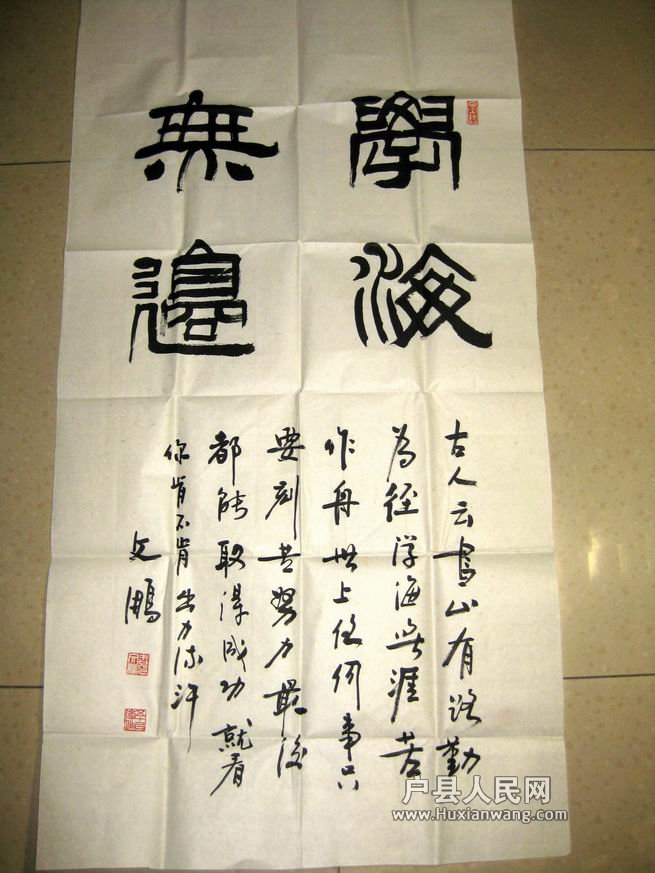 學海
無邊
古人云書山有路勤
为径学海無涯苦
作舟世上任何事只
要刻苦努力最後
都能取得成功就看
你肯不肯出力流汗
文鵬
户县人民网
www.Huxianwang.com